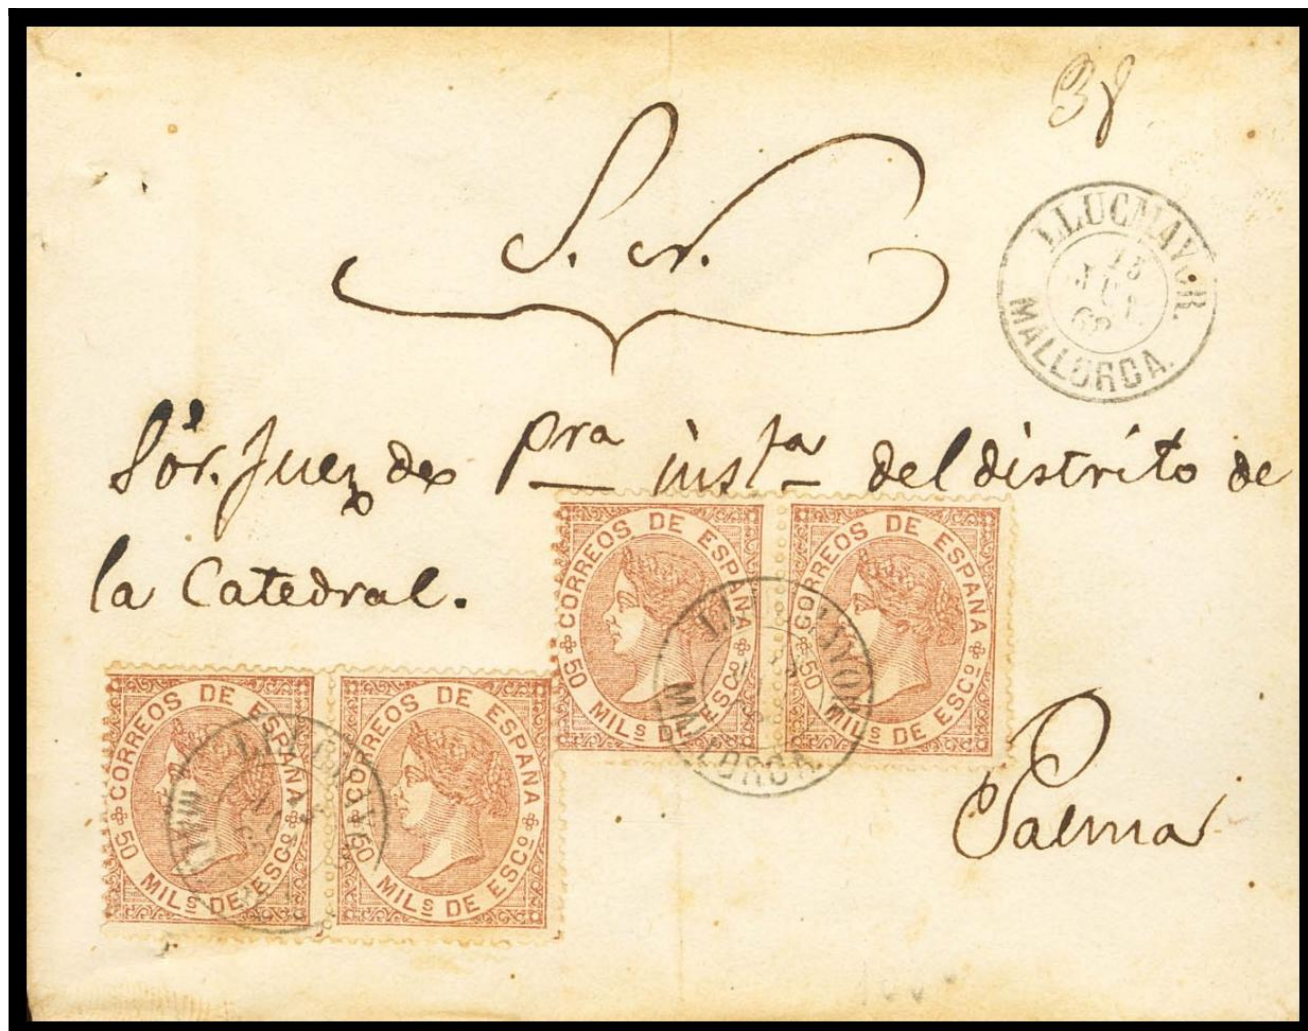 38
S. N.
LLUCMAYOR.
15
JUL
68
MALLORCA.
Sor. Juez de Pra insta del distrito de
la Catedral.
CORREOS DE ESPAÑA
50 MILS DE ESCO
CORREOS DE ESPAÑA
50 MILS DE ESCO
MALLORCA.
Palma
CORREOS DE ESPAÑA
50 MILS DE ESCO
CORREOS DE ESPAÑA
50 MILS DE ESCO